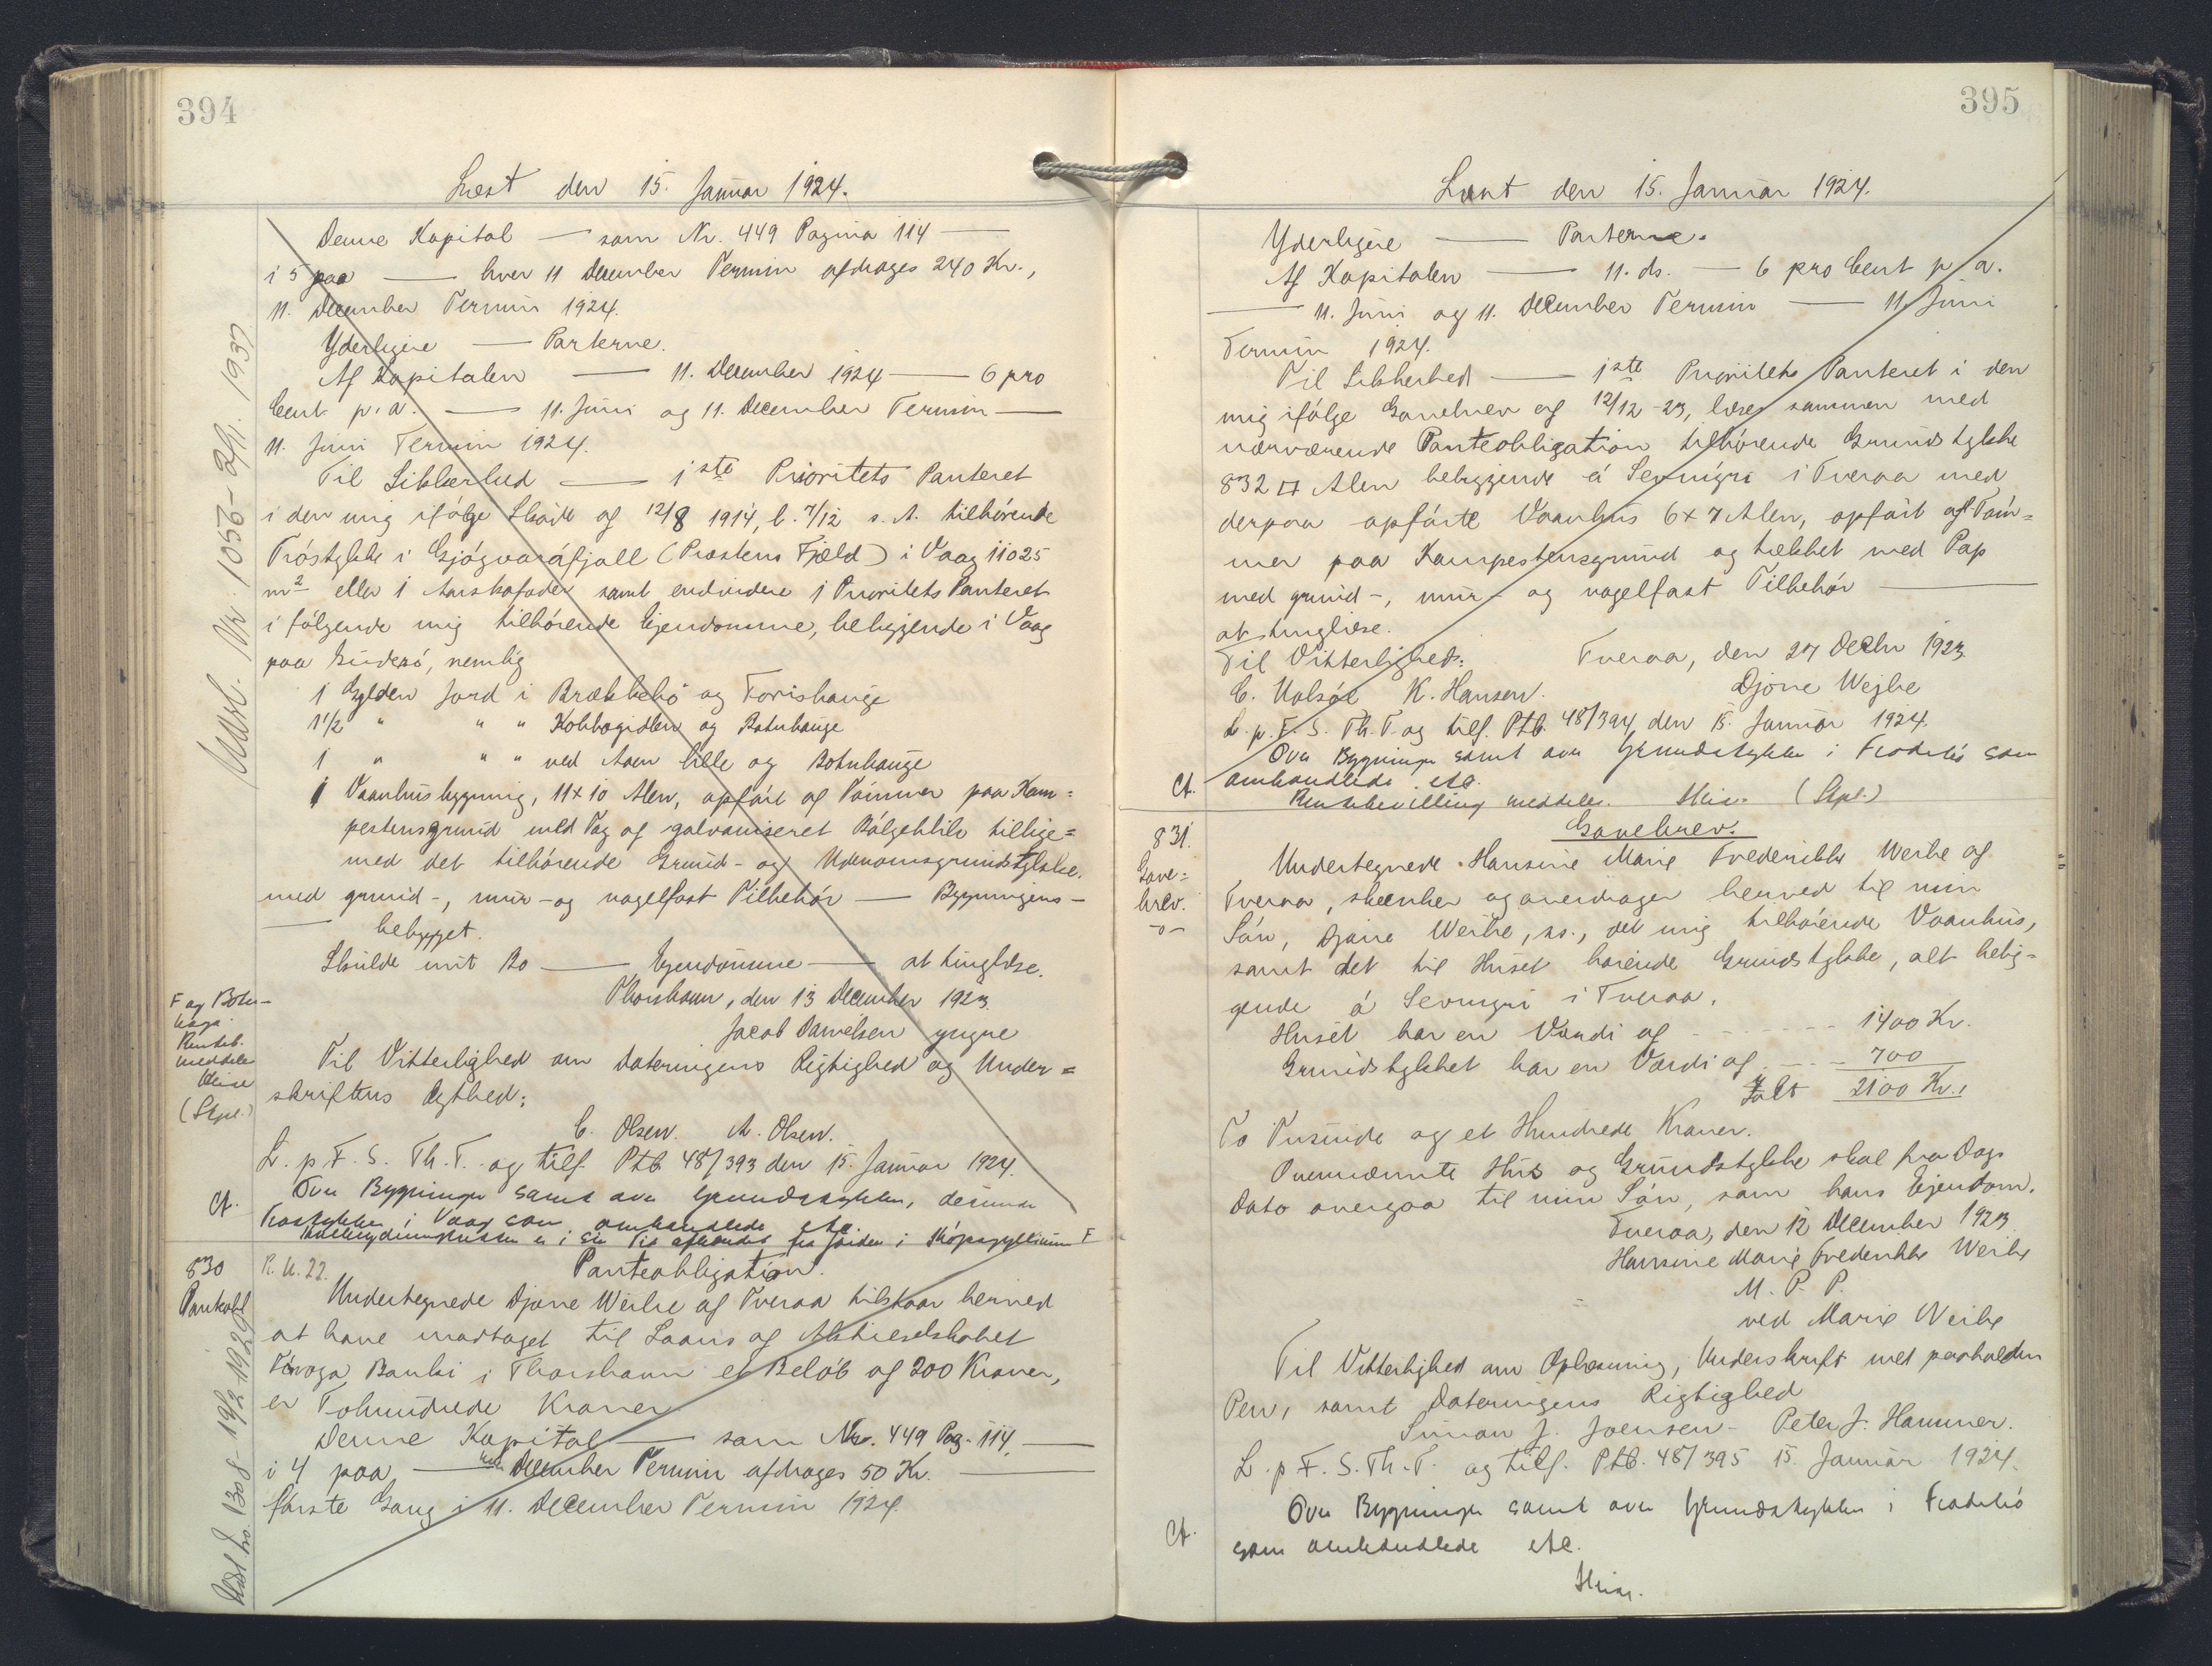 394
Læst den 15. Januar 1924.
Denne Kapital — som Nr. 449 Pagina 114 —
i 5 paa — hver 11 December Termin afdrages 240 Kr.,
11. December Termin 1924.
Yderligere — Parterne.
Af Kapitalen — 11. December 1924 — 6 pro
Cent p. a. — 11. Juni og 11. December Termin —
11. Juni Termin 1924.
Til Sikkerhed — 1ste Prioritets Panteret
i den mig ifølge Skøde af 12/8 1914, l. 7/12 s. A. tilhørende
Trøstykke i Gjógvaráfjall (Præstens Fjæld) i Vaag 11025
m2 eller 1 Aarskofoder samt endvidere 1 Prioritets Panteret
i følgende mig tilhørende Ejendomme, beliggende i Vaag
paa Suderø, nemlig
1 Gylden Jord i Brækkebø og Forishauge
1 1/2 " " " Kohbagidlen og Botnhauge
1 " " " ved Aaen lille og Botnhauge
1 Vaanhusbygning, 11 x 10 Alen, opført af Tømmer paa Kam=
pestensgrund med Tag af galvaniseret Bølgeblik tillige=
med det tilhørende Grund- og Udenomsgrundstykke.
med grund-, mur- og nagelfast Tilbehør — Bygningens —
— bebygget.
Skulde mit Bo — Ejendomme — at tinglæse.
Thorshavn, den 13 December 1923.
Jacob Danielsen yngre
Til Vitterlighed om Dateringens Rigtighed og Under=
skriftens Ægthed:
C. Olsen. A. Olsen.
L. p. F. S. Th. T. og tilf. Ptb. 48/393 den 15. Januar 1924.
Ct. Over Bygninger samt over Grundstykker, derunder
Trøstykket i Vaag som omhandlede etc.
F og Botn-
hage.
Renteb.
meddeles
Heise
(Stpl.)
Udsl. Nr. 1056 - 2/11. 1937
830
Panteobl
R. U. 22.
Panteobligation.
Undertegnede Djone Weihe af Tveraa tilstaar herved
at have modtaget til Laans af Aktieselskabet
Føroya Banki i Thorshavn et Beløb af 200 Kroner,
er Tohundrede Kroner
Denne Kapital — som Nr. 449 Pag. 114. —
i 4 paa — hver December Termin afdrages 50 Kr. —
første Gang i 11. December Termin 1924.
Udsl. No. 1308 - 19/2 1929
395
Læst den 15. Januar 1924.
Yderligere — Parterne.
Af Kapitalen — 11. ds. — 6 pro Cent p. a.
— 11. Juni og 11. December Termin — 11 Juni
Termin 1924.
Til Sikkerhed — 1ste Prioritets Panteret i den
mig ifølge Gavebrev af 12/12 - 23, læses sammen med
nærværende Panteobligation tilhørende Grundstykke
832 □ Alen beliggende á Sevmýri i Tveraa med
derpaa opførte Vaanhus 6 x 7 Alen, opført af Tøm=
mer paa Kampestensgrund og tækket med Pap
med grund-, mur- og nagelfast Tilbehør —
at tinglæse.
Til Vitterlighed: Tveraa, den 27 Decbr 1923
K. Hansen. Djone Wejhe
L. p. F. S. Th. T. og tilf. Ptb. 48/394 den 15. Januar 1924.
Over Bygninger samt over Grundstykker i Frodebø som
Ct. omhandlede etc.
Rentebevilling meddeles. Heise (Stpl.)
831.
Gave=
brev.
-o-
Gavebrev.
Undertegnede Hansine Marie Frederikke Weihe af
Tveraa, skænker og overdrager herved til min
Søn, Djone Weihe, ss., det mig tilhørende Vaanhus,
samt det til Huset hørende Grundstykke, alt belig-
gende á Sevmyri i Tveraa.
Huset har en Værdi af - - - - 1400 Kr.
Grundstykket har en Værdi af - - - 700
Ialt 2100 Kr.
To Tusinde og et Hundrede Kroner.
Ovennævnte Hus og Grundstykke skal fra Dags
Dato overgaa til min Søn, som hans Ejendom.
Tveraa, den 12 December 1923.
Hansine Marie Frederikke Weihe
M. P. P.
ved Marie Weihe
Til Vitterlighed om Oplæsning, Underskrift med paaholden
Pen, samt Dateringens Rigtighed
Simon J. Joensen - Peter J. Hammer.
L. p. F. S. Th. T. og tilf. Ptb. 48/395 15. Januar 1924.
Over Bygninger samt over Grundstykker i Frodebø
Ct. som omhandlede etc.
Heise.